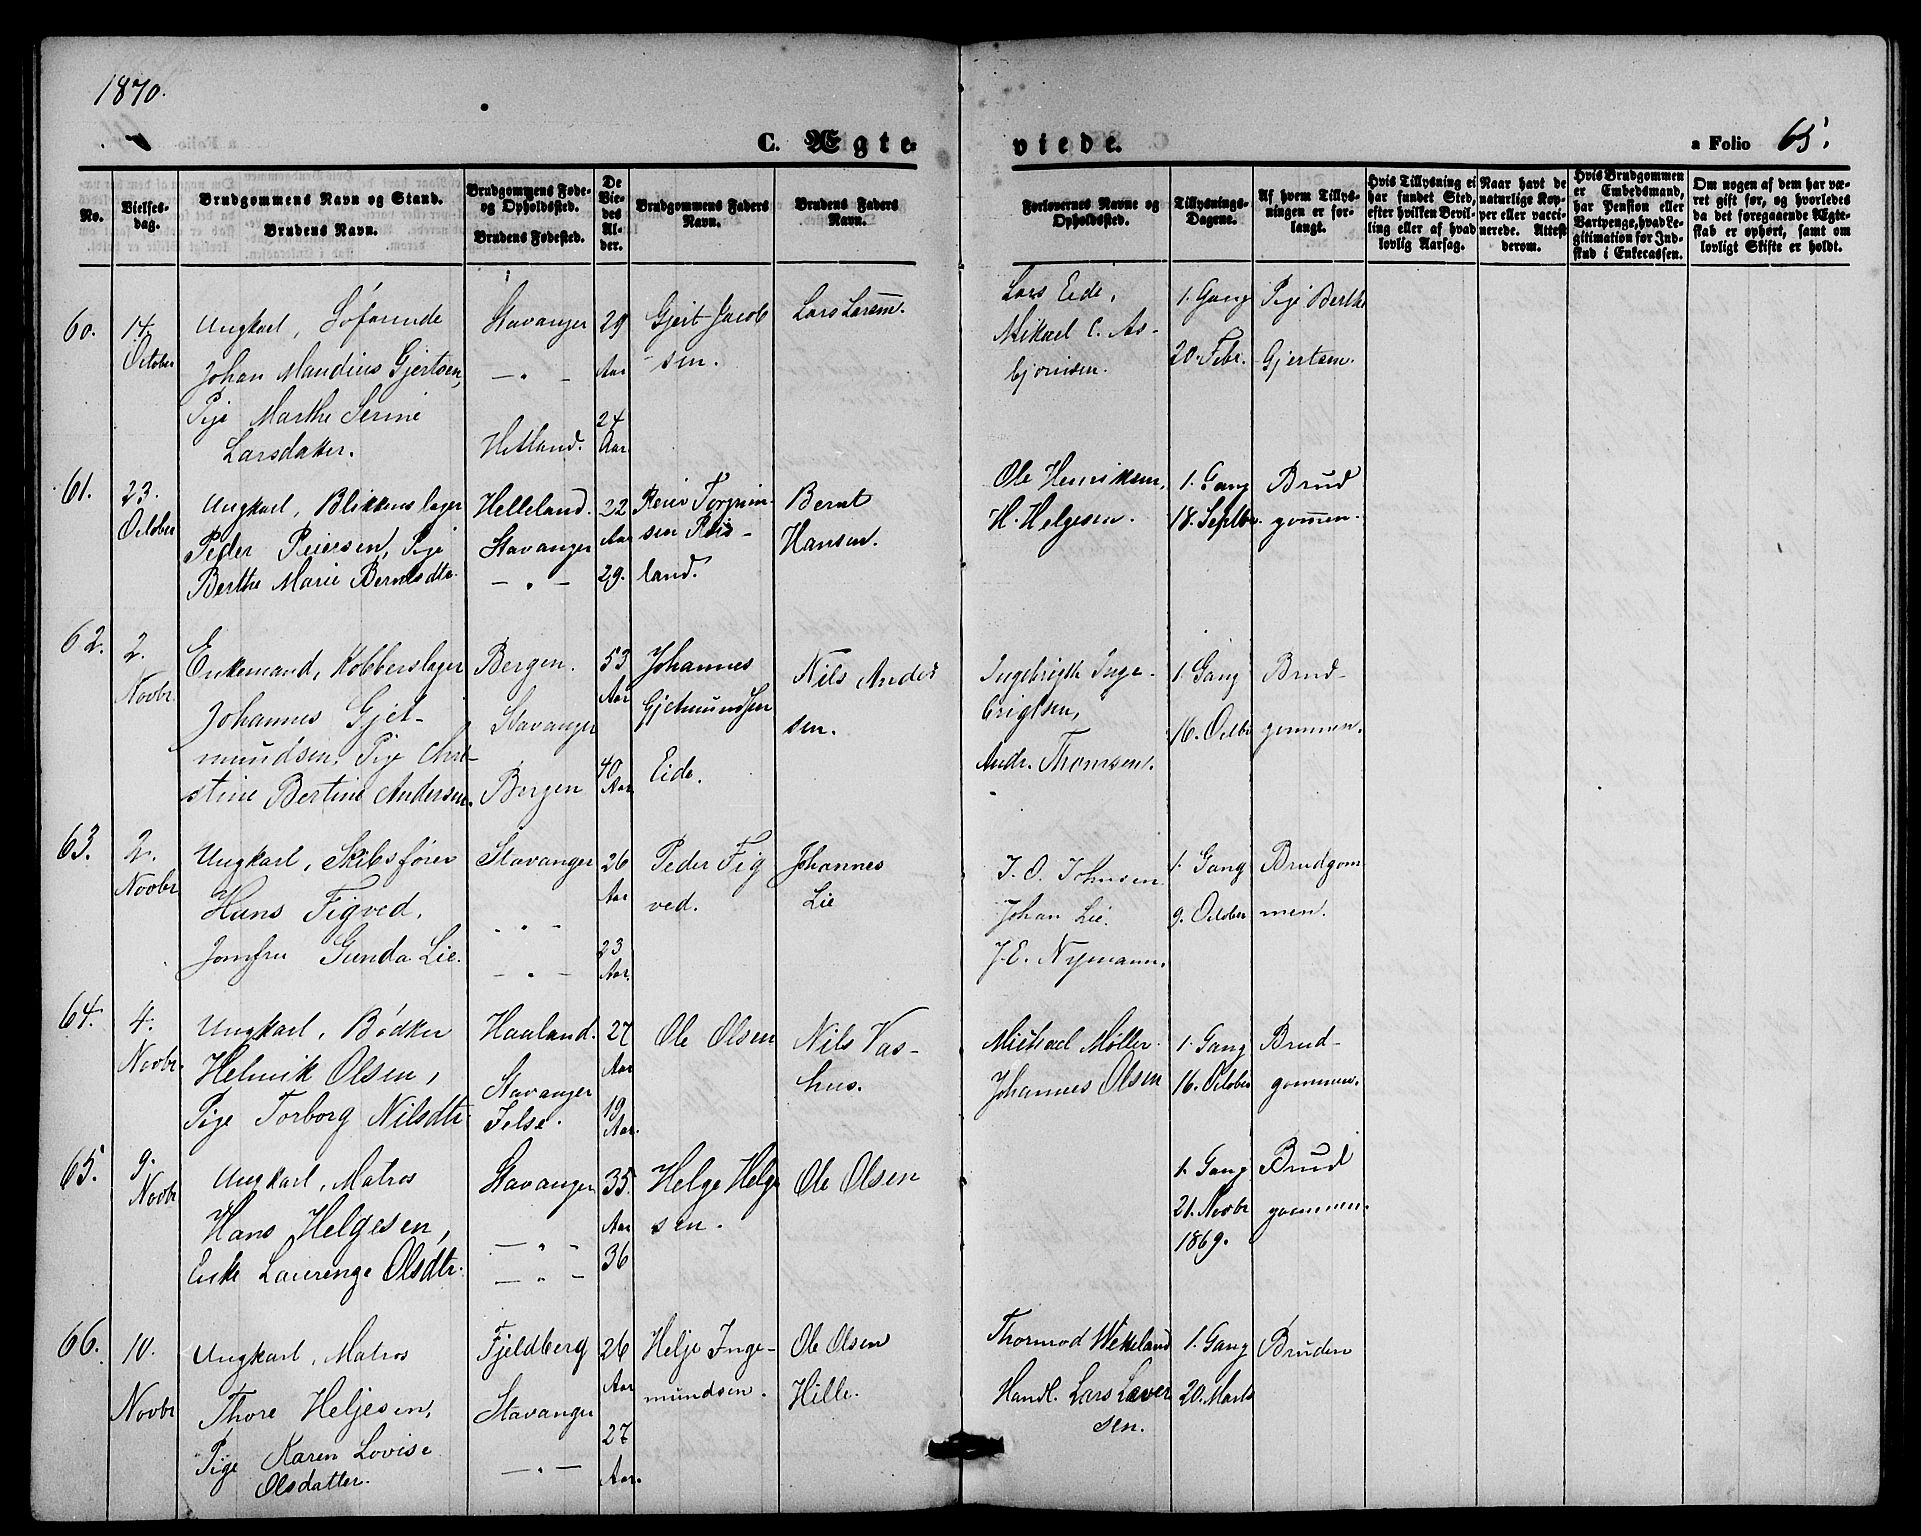 1870.
C. Ægte-
viede.
a Folio 65.
No.
Vielses-
dag.
Brudgommens Navn og Stand.
Brudens Navn.
Brudgommens Føde-
og Opholdssted.
Brudens Fødested.
De
Vie-
des
Al-
der.
Brudgommens Faders
Navn.
Brudens Faders
Navn.
Forlovernes Navne og
Opholdssted.
Tillysnings-
Dagene.
Af hvem Tillys-
ningen er for-
langt.
Hvis Tillysning ei
har fundet Sted,
efter hvilken Bevil-
ling eller af hvad
lovlig Aarsag.
Naar havt de
naturlige Kop-
per eller vacci-
nerede. Attest
derom.
Hvis Brudgommen
er Embedsmand,
har Pension eller
Vartpenge, hvad Le-
gitimation for Ind-
skud i Enkecassen.
Om nogen af dem har væ-
ret gift før, og hvorledes
da det foregaaende Ægte-
skab er ophørt, samt om
lovligt Skifte er holdt.
60.
14.
October
Ungkarl, Søfarende
Johan Mandius Gjertsen,
Pige Marthe Serine
Larsdatter.
Stavanger
— " —
Hetland.
29
Aar
24
Aar
Gjert Jacob
sen.
Lars Larsen.
Lars Eide,
Mikael C. As-
bjørnsen.
1. Gang
20. Febr.
Pige Berthe
Gjertsen.
61.
23.
October
Ungkarl, Blikkenslager
Peder Reiersen, Pige
Berthe Marie Berntsdtr.
Helleland.
Stavanger
— " —
22
Aar
29.
Reier Torgrim-
sen Reis-
land.
Bernt
Hansen.
Ole Henriksen,
H. Helgesen.
1. Gang
18. Septbr.
Brud
gommen.
62.
2.
Novbr.
Enkemand, Kobberslager
Johannes Gjet-
mundsen, Pige Chri-
stine Bertine Andersen.
Bergen.
Stavanger
Bergen
53
Aar
40
Aar
Johannes
Gjetmundsen
Eide.
Nils Ander
sen.
Ingebrigth Inge-
brigtsen,
Andr. Thomsen.
1. Gang
16. Octbr
Brud-
gommen.
63.
2.
Novbr
Ungkarl, Skibsfører
Hans Figved,
Jomfru Gunda Lie.
Stavanger
" " "
— " —
26
Aar
23
Aar.
Peder Fig
ved.
Johannes
Lie
J. O. Johnsen
Johan Lie.
J. E. Nymann.
1. Gang
9. October
Brudgom
men.
64.
4.
Novbr.
Ungkarl, Bødker
Helmik Olsen,
Pige Torborg Nilsdtr.
Haaland.
Stavanger
Jelse.
27
Aar
19
Aar.
Ole Olsen
Nils Vas-
hus.
Michael Møller
Johannes Olsen
1. Gang
16. October
Brud-
gommen.
65.
9.
Novbr
Ungkarl, Matros
Hans Helgesen,
Enke Laurenze Olsdtr.
Stavanger
— " —
— " —
35.
Aar
36
Helge Helge
sen.
Ole Olsen
1. Gang
21. Novbr
1869.
Brud
gommen.
66.
10.
Novbr
Ungkarl, Matros
Thore Heljesen,
Pige Karen Lovise
Olsdatter.
Fjeldberg
Stavanger
— " —
26
Aar
27
Aar.
Helje Inge-
mundsen.
Ole Olsen
Hille.
Thormod Wekeland
Handl. Lars Laver
sen.
1. Gang
20. Marts
Bruden